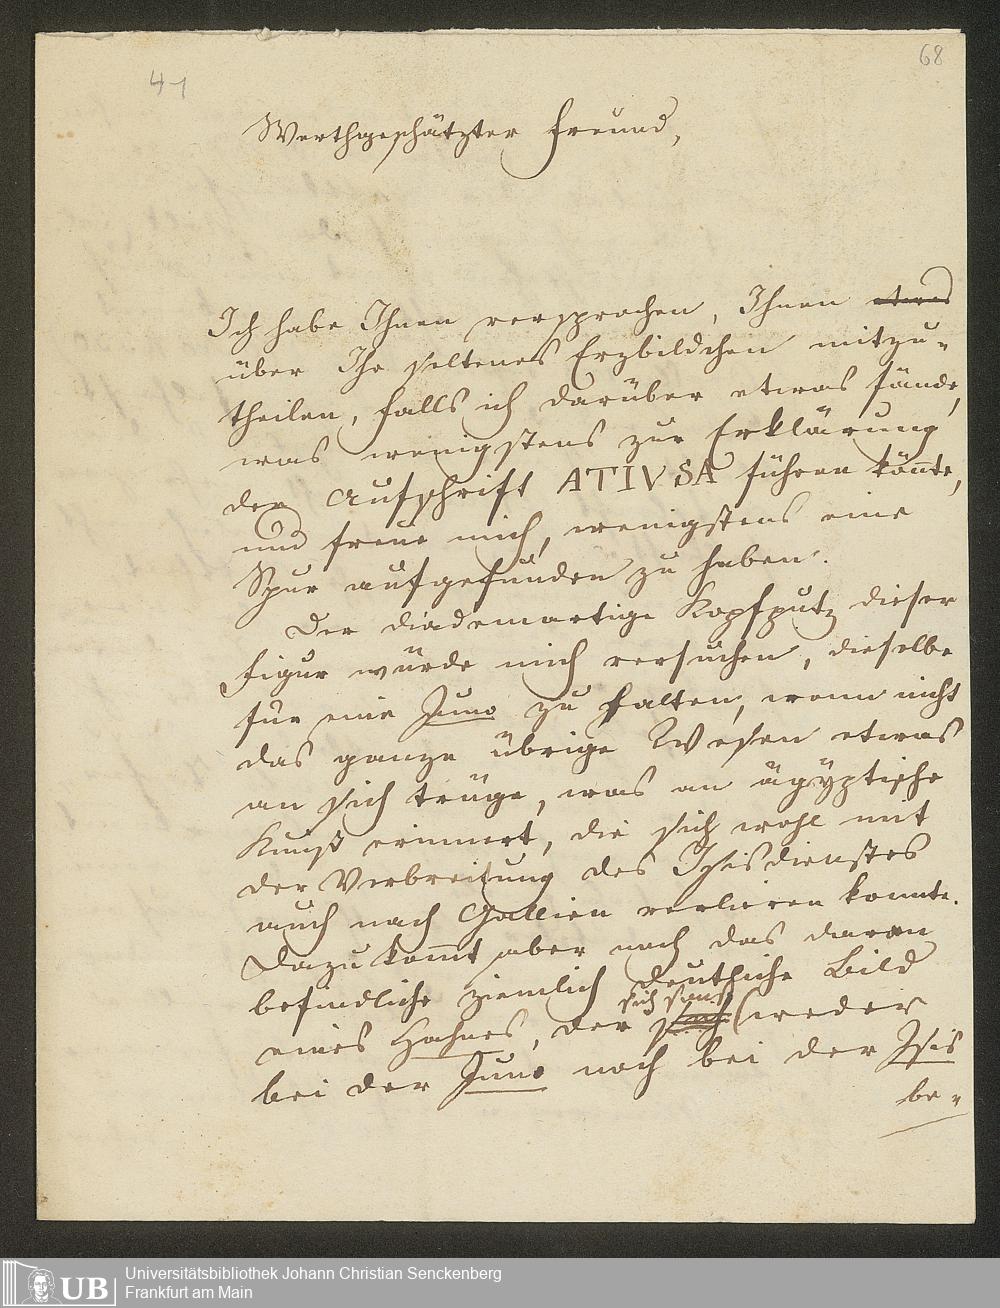 41
68
Werthgeschätzter Freund,
Ich habe Ihnen versprochen, Ihnen etwas
über Ihr seltenes Erzbildchen mitzu-
theilen, falls ich darüber etwas fände,
was wenigstens zur Erklärung
der Aufschrift ATIVSA führen könnte,
und freue mich, wenigstens eine
Spur aufgefunden zu haben.
Der diademartige Kopfputz dieser
Figur würde mich versuchen, dieselbe
für eine Juno zu halten, wenn nicht
das ganze übrige Wesen etwas
an sich trüge, was an ägyptische
Kunst erinnert, die sich wohl mit
der Verbreitung des Isisdienstes
auch nach Gallien verlieren konnte.
Dazu kommt aber noch das daran
befindliche ziemlich deutliche Bild
sich sonst
eines Hahnes, der weder
bei der Juno noch bei der Isis
be-
UB
Universitätsbibliothek Johann Christian Senckenberg
Frankfurt am Main